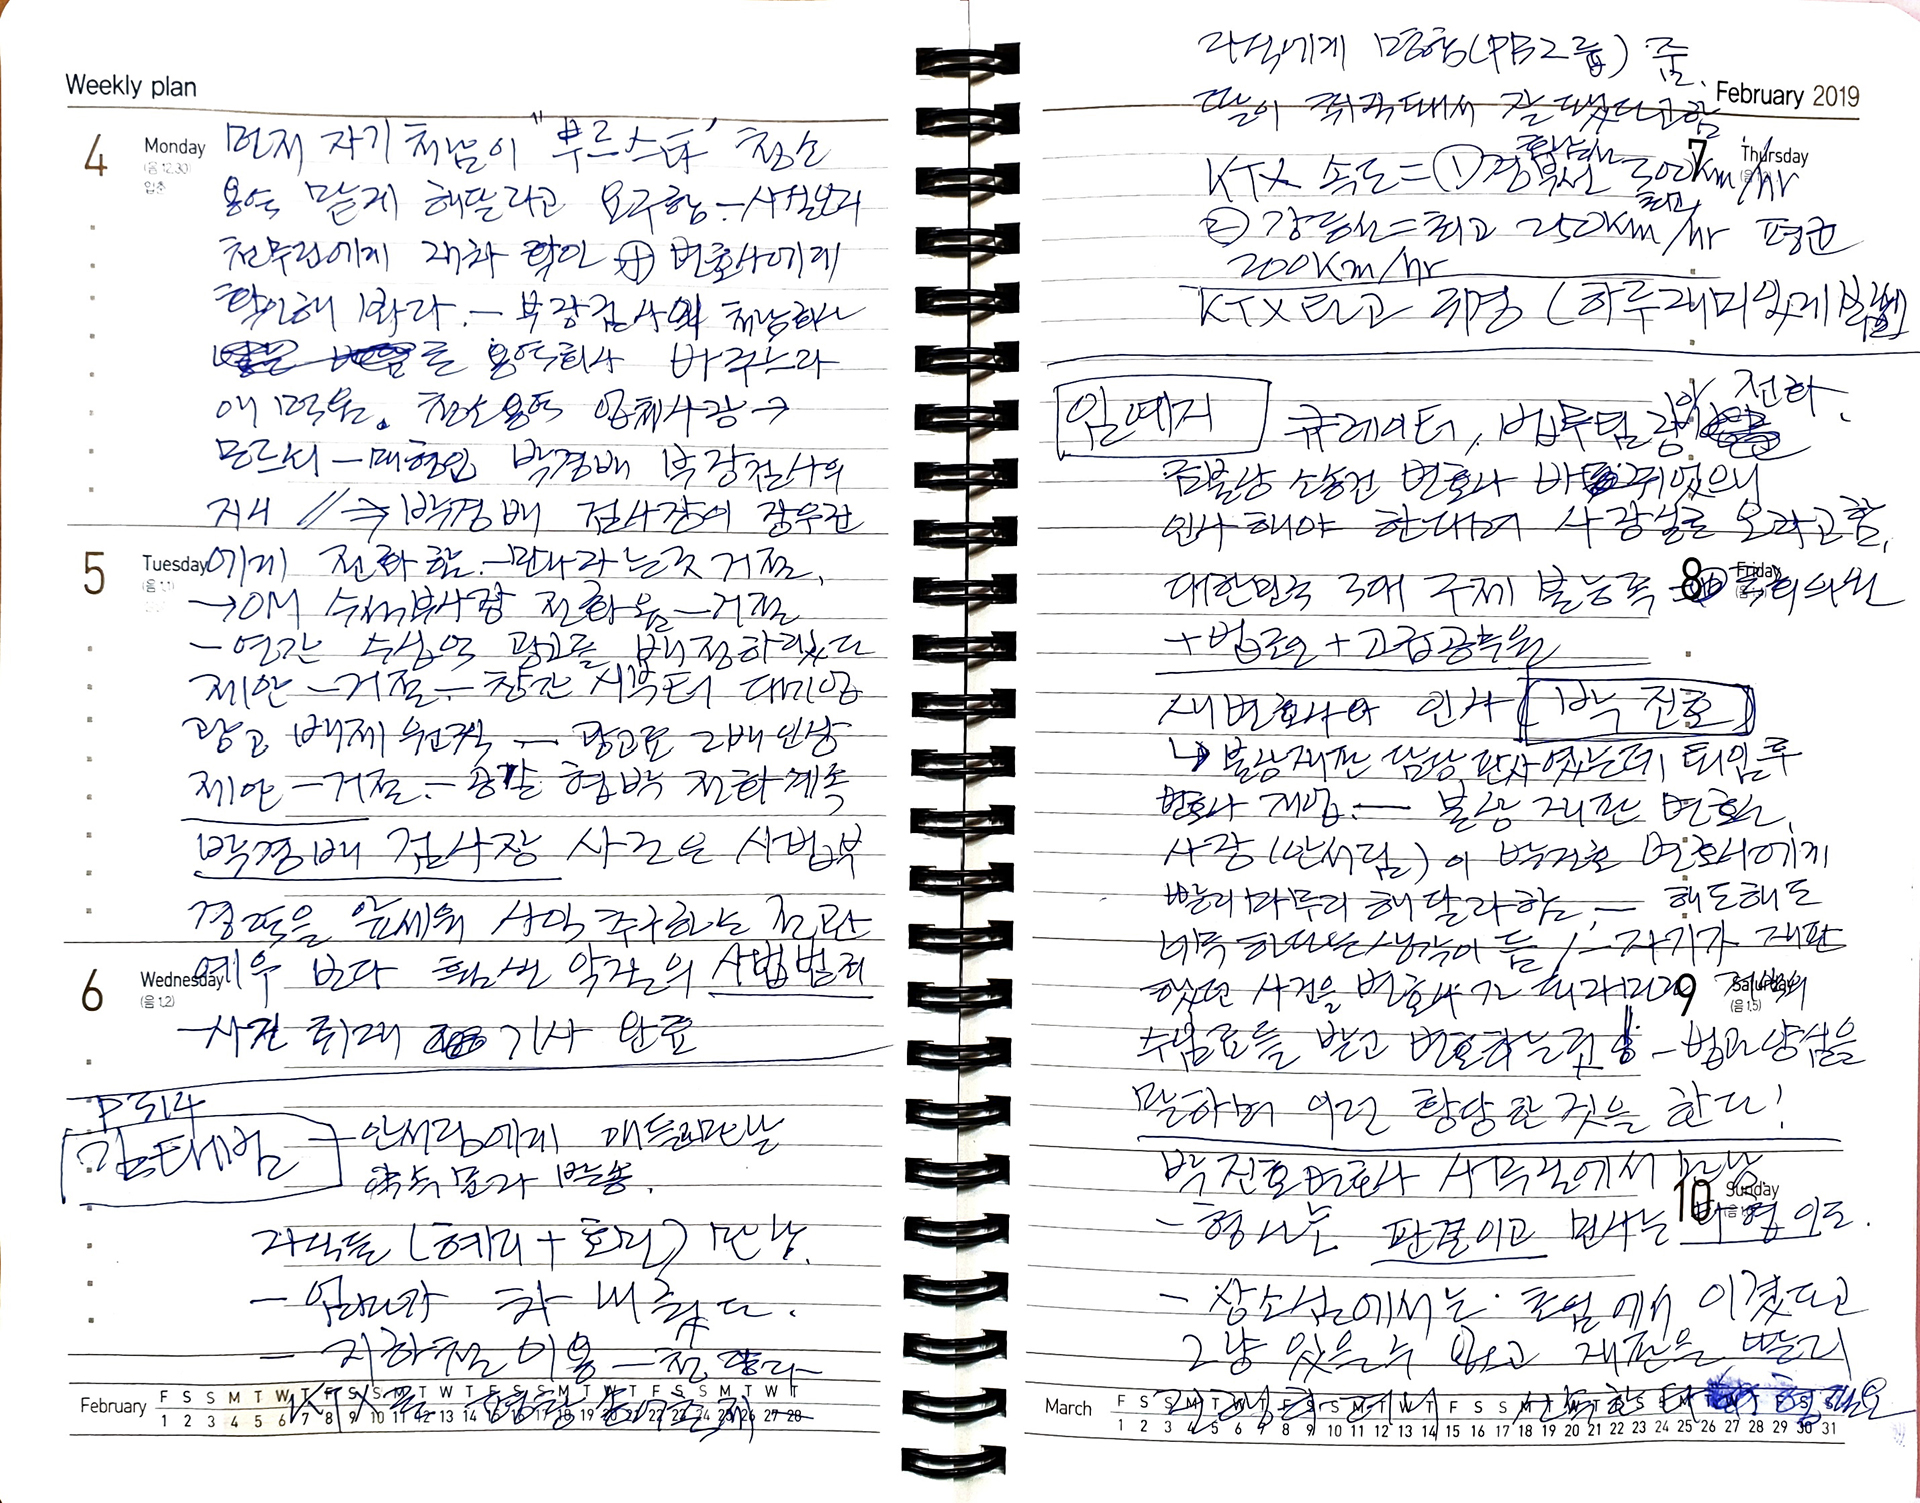 Weekly plan
4 Monday
(음 12.30)
입춘
먼저 자기 처남이 "부르스타" 청소
용역 맡게 해달라고 요구함 - 사실보다
전무님에게 재차 확인 ⊕ 변호사에게
확인해 봐라. - 부장검사의 처남회사
를 용역회사 바꾸느라
애 먹음. 청소용역 업체사장 →
모르쇠 - 매형인 박경배 부장검사의
지시 // ⇒ 박경배 검사장이 장우진
5 Tuesday
(음 1.1)
에게 전화함. - 만나라는것 거절.
→ OM 수석부사장 전화옴 - 거절
- 연간 수십억 광고를 배정하겠다
제안 - 거절. - 창간 시부터 대기업
광고 배제 원칙 - 광고료 2배 인상
제안 - 거절. - 공갈 협박 전화 계속
박경배 검사장 사건은 사법부
경력을 앞세워 사익 추구하는 전관
6 Wednesday
(음 1.2)
예우 보다 훨씬 악질의 사법범죄
- 사건 취재 기사 완료
P 314
김태범 - 안서림에게
약속
자식들 (혜리 + 호리) 만남.
- 엄마가 차
- 지하철 이용
KTX를
February F S S M T W T F S S M T W T F S S M T W T F S S M T W T
1 2 3 4 5 6 7 8 9 10 11 12 13 14 15 16 17 18 19 20 21 22 23 24 25 26 27 28
자식에게 명함 줌.
February 2019
딸이 취직돼서 잘 됐다고 함
7 Thursday
KTX 속도 = ① 경부선 호남선 300km/hr
② 강릉선 = 최고 250km/hr 평균
200km/hr
KTX 타고 귀경 (하루 재미있게 보냄)
임예지 큐레이터, 법무팀장의 전화.
금불상 소송건 변호사 바뀌었으니
인사해야 한다며 사장실로 오라고 함.
8 Friday
대한민국 3대 구제 불능족 국회의원
+ 법조인 + 고급공무원
새 변호사와 인사 [박진호]
↳ 불상재판 담당 판사였는데 퇴임 후
변호사 개업. - 불상 재판 변호.
사장(안서림)이 박진호 변호사에게
빨리 마무리 해 달라 함. - 해도해도
너무 한다는 생각이 듬 / - 자기가 재판
9 Saturday
(음 1.5)
했던 사건을 변호사가 되려
수임료를 받고 변호하는 것 - 법과 양심을
말하며 이런 황당한 것을 한다!
박진호 변호사 사무실에서 만남
10 Sunday
- 형사는 판결이고 민사는
- 항소심에서는 이겼다고
그냥 있을 수 없고 재판을 빨리
March F S S M T W T F S S M T W T F S S M T W T F S S M T W T F S S
1 2 3 4 5 6 7 8 9 10 11 12 13 14 15 16 17 18 19 20 21 22 23 24 25 26 27 28 29 30 31